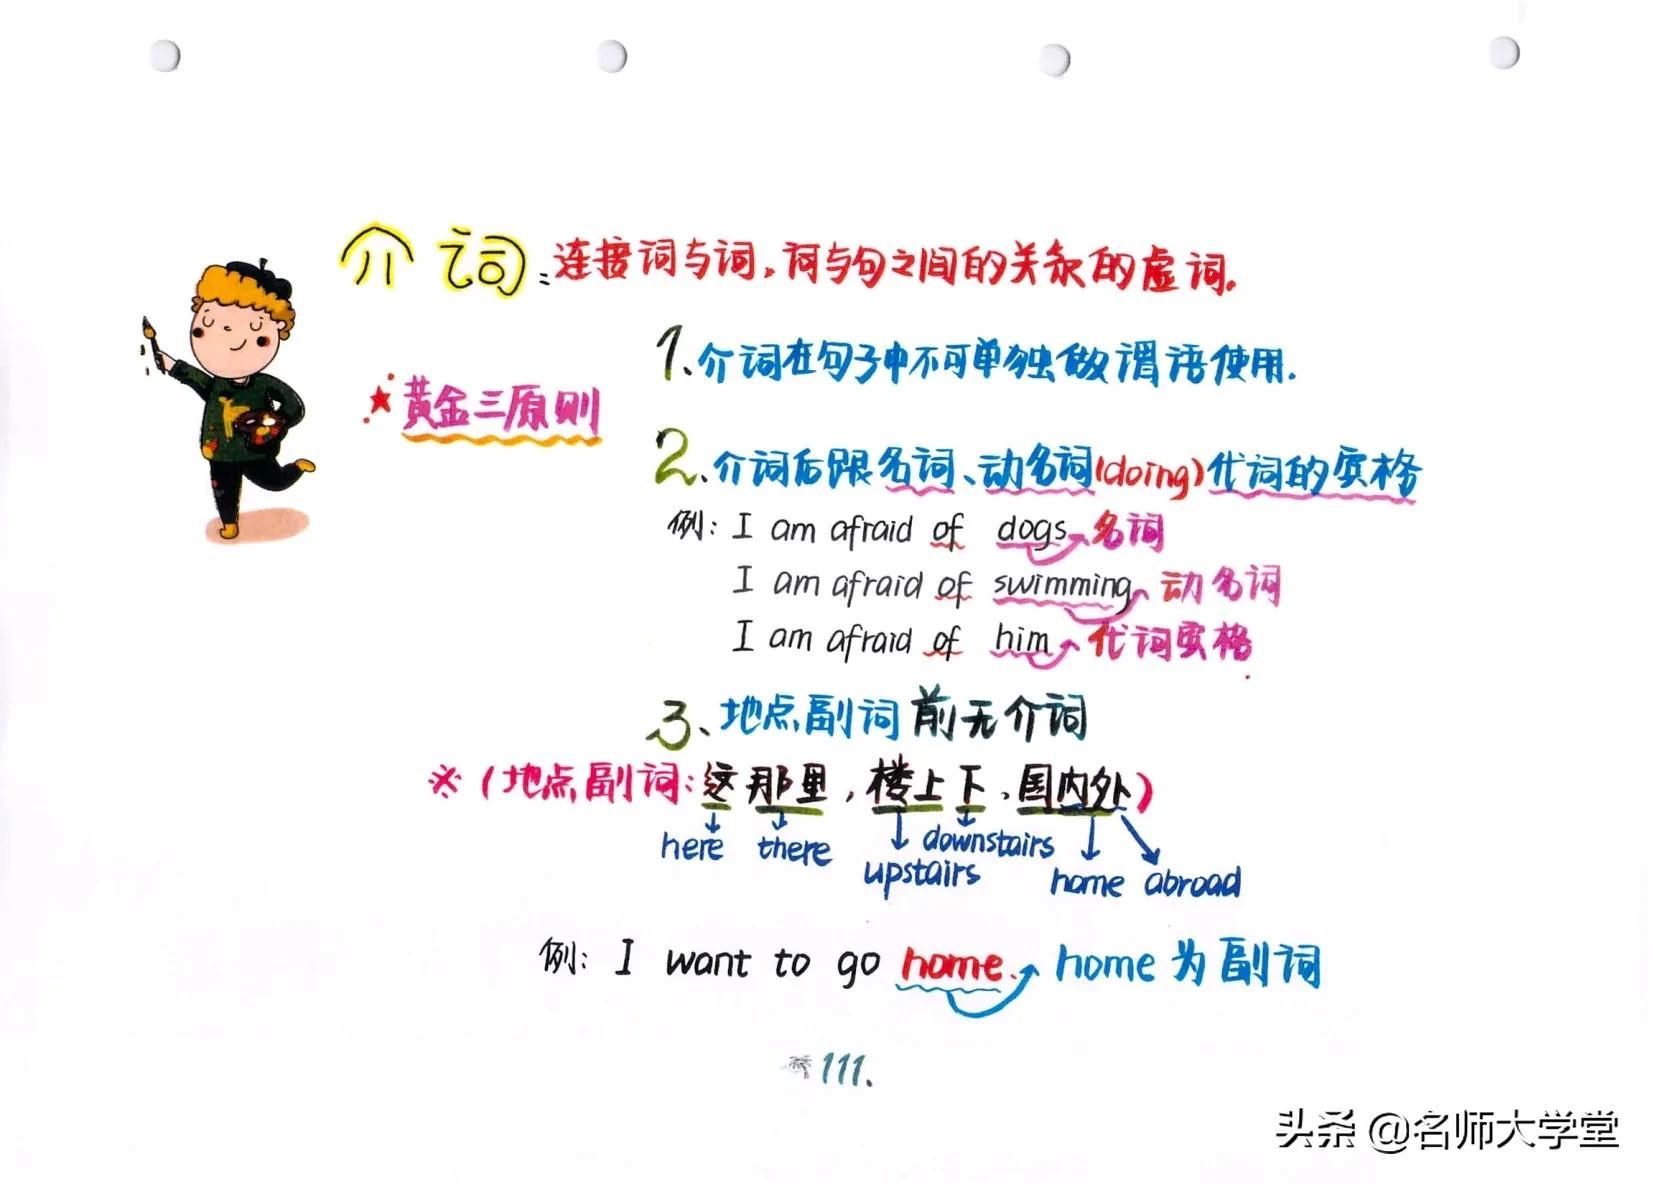 介词：连接词与词，词与句之间的关系的虚词.
1、介词在句子中不可单独做谓语使用.
★黄金三原则
2、介词后跟名词、动名词(doing)代词的宾格
例：I am afraid of dogs 名词
I am afraid of swimming 动名词
I am afraid of him 代词宾格
3、地点副词前无介词
※(地点副词：这那里，楼上下、国内外)
here there upstairs downstairs home abroad
例：I want to go home. home为副词
111.
头条 @名师大学堂